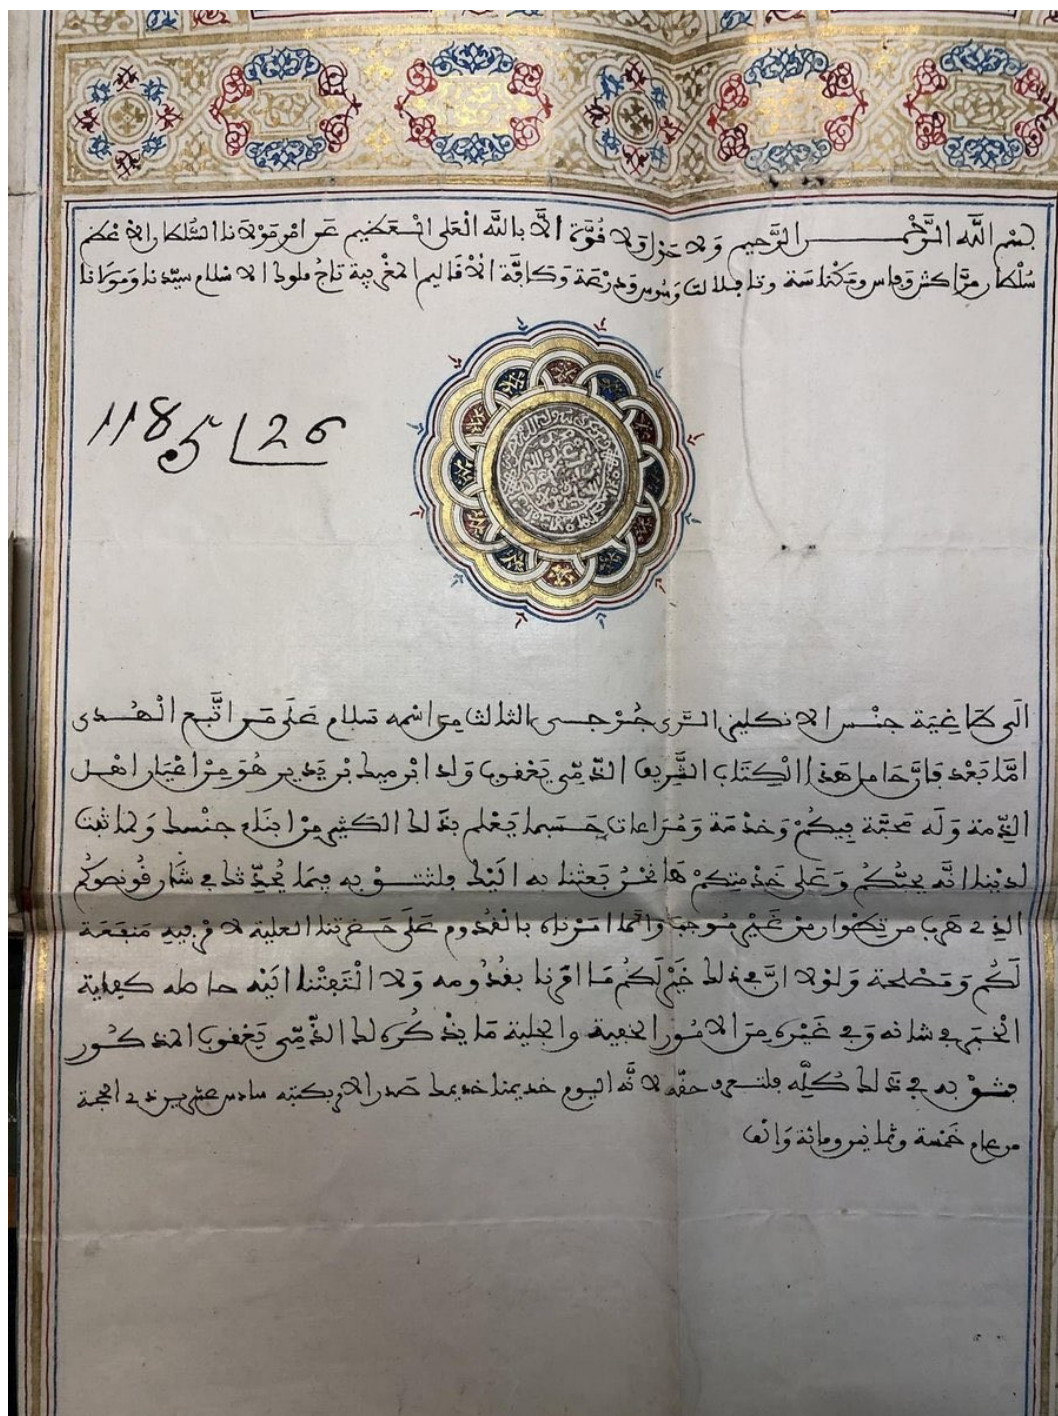 بسْم اللَّه الرَّحْمـــــن الرَّحِيم وَلا حَوْل وَلا قُوَّة الَّا باللَّه الْعَلى الْعَظيم عَن امْر مَوْلانا السُّلطان الاعْظم
سُلْطان مرَّاكش وفاس ومكناسة وتافيلالت وَسُوس وَدرْعَة وَكافَّة الأقاليم المغْربية تاجُ ملوك الاسْلام سيّدنا وَموْلانا
1185 26
الَى طاغِيَة جنْس الانكليز الرَّى جُرْجس الثالث من اسْمه سَلام عَلَى مَن اتَّبع الْهُدى
امَّا بَعْد فَانَّ حامل هَذا الْكِتاب الشَّريف الذّمّى يَعْقوب وَلد ابرهيط بن يَدير هُوَ مِنْ اعْيان اهْل
الذّمة وَلَه مَحَبَّة فِيكُمْ وَخدْمة وَمُرَاعات حَسَبما يَعْلم بذَلك الكثير مِنْ ابناء جنْسك وَلما ثبت
لديْنا انَّه يحبُّكُم وَعَلى خدْمتِكمْ هَا نحْنُ بَعثْنا به الَيْك فلتثــوْ به فِيمَا يُحدِّثك فى شأن قُونصُوكُم
الذِى هَرب من تِطْوان منْ غَيْر مُوجب وَانَّما امَرْناه بالْقُدُوم عَلَى حَضْرتنا العلية لامر فيهِ مَنفَعَة
لَكُم وَمَصْلحة وَلَوْلا انَّ فى ذلك خَيْر لَكُم مَا امَرْنا بقُدُومه وَلا الْتَفتْنا الَيْه حامله كفاية
الْخبَر فى شانه وَفى غَيْره مِنَ الامُور الخفية والجلية مَا يذْكُره لك الذِّمّى يَعْقوب المذكُور
فثــوْ به فى ذَلك كُلّه فلتــعرف حقّه لانَّه اليوم خديمنا خديمك صَدر الامر بكتبه سادس عشرين ذى الحجة
من عام خَمْسة وثمانين ومائة وَالْف